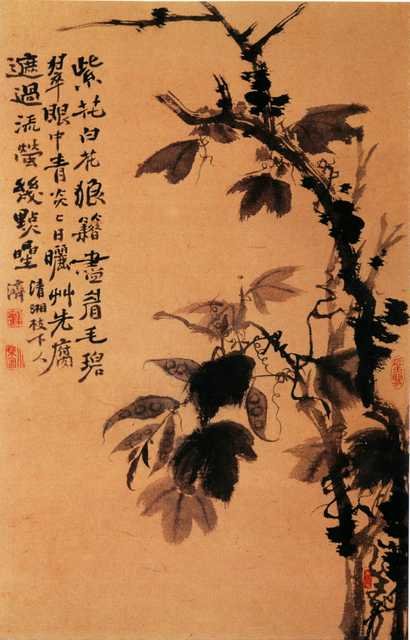 紫花白花狼籍盡眉毛碧
眼中青炎〻日曬艸先腐
遮過流螢幾點星
清湘枝下人
濟